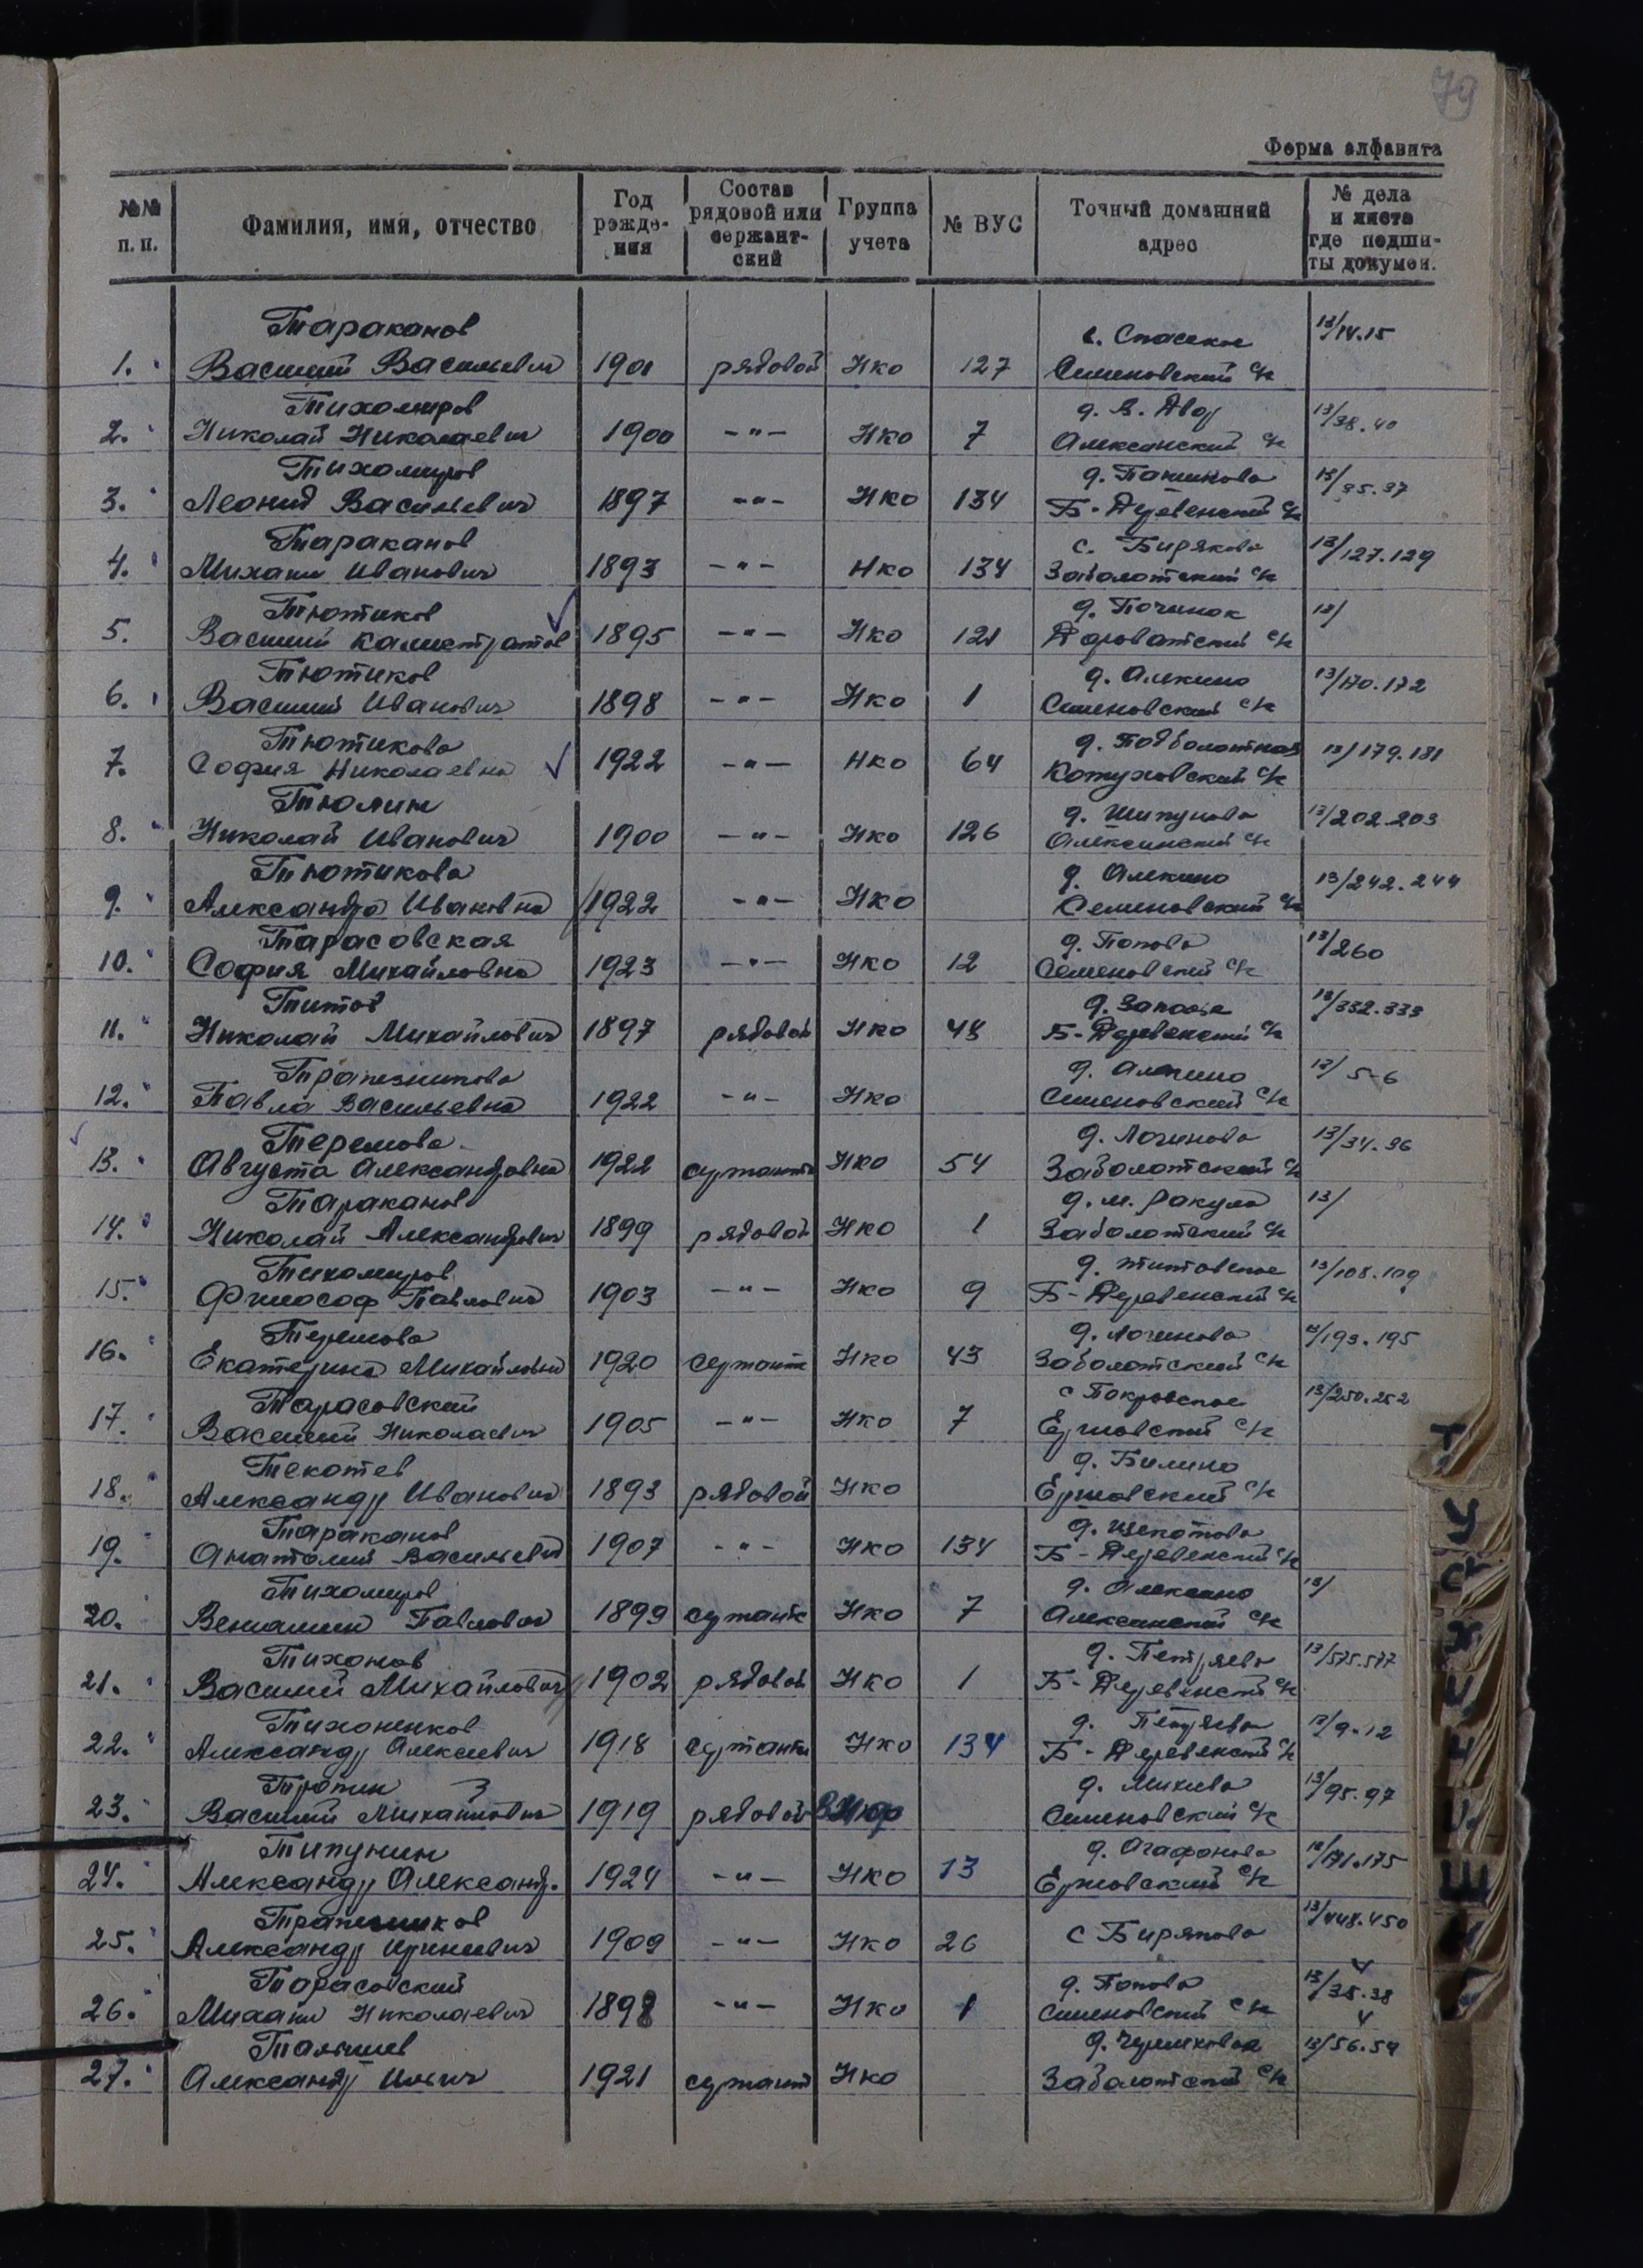 79
Форма алфавита
№№ п. п. Фамилия, имя, отчество Год рожде-ния Состав рядовой или сержант-ский Группа учета № ВУС Точный домашний адрес № дела и листа где подши-ты докумен.
Тараканов с. Спасское 13/14.15
1. Василий Васильевич 1901 рядовой Нко 127 Семеновский с/с
Тихомиров д. В. Двор 13/38.40
2. Николай Николаевич 1900 -"- Нко 7 Алексинский с/с
Тихомиров 13/35.37
3. Леонид Васильевич 1897 -"- Нко 134 Б-Деревенский с/с
Тараканов с. Бирякова 13/127.129
4. Михаил Иванович 1893 -"- Нко 134 Заболотский с/с
Тютиков д. Починок 13/
5. Василий Калистратов 1895 -"- Нко 121 Дороватский с/с
Тютиков д. Алекино 13/170.172
6. Василий Иванович 1898 -"- Нко 1 Семеновский с/с
Тютикова д. Подболотная 13/179.181
7. София Николаевна 1922 -"- Нко 64 Кожуховский с/с
Тюлин д. Шипунова 13/202.203
8. Николай Иванович 1900 -"- Нко 126 Алексинский с/с
Тютикова д. Алекино 13/242.244
9. Александра Ивановна 1922 -"- Нко Семеновский с/с
Тарасовская д. Попова 13/260
10. София Михайловна 1923 -"- Нко 12 Семеновский с/с
Титов 13/332.333
11. Николай Михайлович 1897 рядовой Нко 43 Б-Деревенский с/с
Трапезникова д. Алекино 13/5-6
12. Павла Васильевна 1922 -"- Нко Семеновский с/с
Теремова д. Логинова 13/34.36
13. Августа Александровна 1922 сержант Нко 54 Заболотский с/с
Тараканов д. М. Ракула 13/
14. Николай Александрович 1899 рядовой Нко 1 Заболотский с/с
Тихомиров д. Титовское 13/108.109
15. Философ Павлович 1903 -"- Нко 9 Б-Деревенский с/с
Теремова д. Логинова 13/193.195
16. Екатерина Михайловна 1920 сержант Нко 43 Заболотский с/с
Тарасовский с Покровское 13/250.252
17. Василий Николаевич 1905 -"- Нко 7 Ермовский с/с
Текотев д. Билино
18. Александр Иванович 1893 рядовой Нко Ермовский с/с
Тараканов д. Щекотова
19. Анатолий Васильевич 1907 -"- Нко 134 Б-Деревенский с/с
Тихомиров д. Алексино 13/
20. Вениамин Павлович 1899 сержант Нко 7 Алексинский с/с
Тихонов д. Петряево 13/575.577
21. Василий Михайлович 1902 рядовой Нко 1 Б-Деревенский с/с
Тихоненков д. Петряева 13/9.12
22. Александр Алексеевич 1918 сержант Нко 134 Б-Деревенский с/с
Тропин 3 д. Михиева 13/95.97
23. Василий Михайлович 1919 рядовой Семеновский с/с
Типунин д. Агафонова 13/171.175
24. Александр Александр. 1924 -"- Нко 13 Ермовский с/с
Трапезников 13/448.450
25. Александр 1909 -"- Нко 26 с Бирякова
Тарасовский д. Попова 13/35.38
26. Михаил Николаевич 1898 -"- Нко 1 Семеновский с/с
13/56.59
27. Александр Ильич 1921 сержант Нко Заболотский с/с
Т
У
Ф
Х
Ц
Ч
Ш